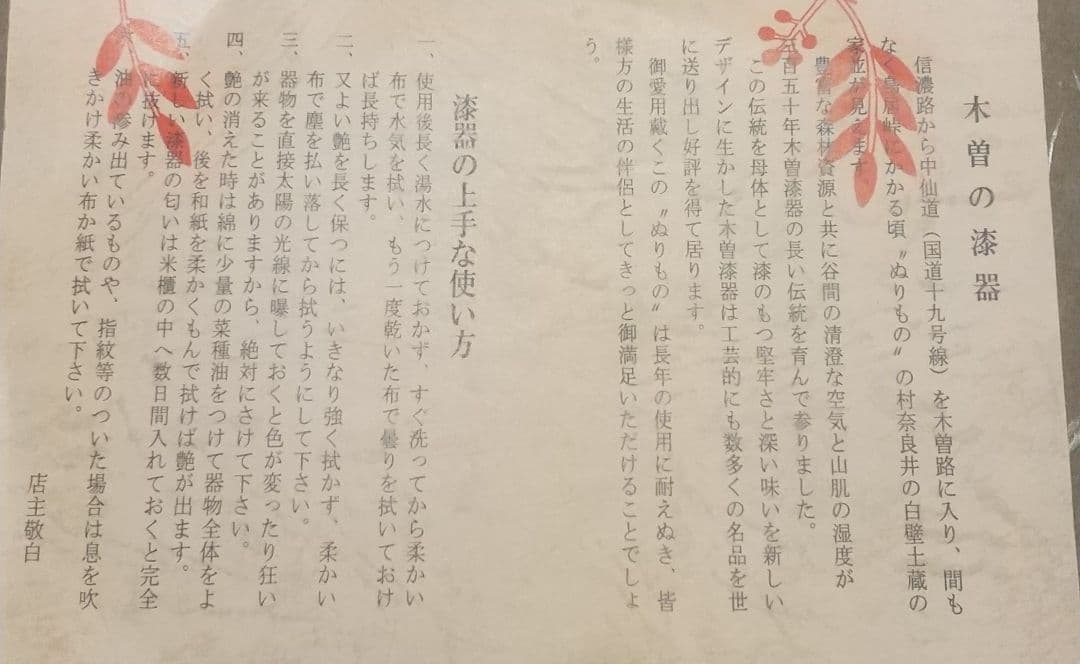 木曽の漆器
信濃路から中仙道（国道十九号線）を木曽路に入り、間も
なく鳥居峠にかかる頃〝ぬりもの〟の村奈良井の白壁土蔵の
家並が見えます。
豊富な森林資源と共に谷間の清澄な空気と山肌の湿度が
三百五十年木曽漆器の長い伝統を育んで参りました。
この伝統を母体として漆のもつ堅牢さと深い味いを新しい
デザインに生かした木曽漆器は工芸的にも数多くの名品を世
に送り出し好評を得て居ります。
御愛用戴くこの〝ぬりもの〟は長年の使用に耐えぬき、皆
様方の生活の伴侶としてきっと御満足いただけることでしょ
う。
漆器の上手な使い方
一、使用後長く湯水につけておかず、すぐ洗ってから柔かい
布で水気を拭い、もう一度乾いた布で曇りを拭いておけ
ば長持ちします。
二、又よい艶を長く保つには、いきなり強く拭かず、柔かい
布で塵を払い落してから拭うようにして下さい。
三、器物を直接太陽の光線に曝しておくと色が変ったり狂い
が来ることがありますから、絶対にさけて下さい。
四、艶の消えた時は綿に少量の菜種油をつけて器物全体をよ
く拭い、後を和紙を柔かくもんで拭けば艶が出ます。
五、新しい漆器の匂いは米櫃の中へ数日間入れておくと完全
に抜けます。
六、油の滲み出ているものや、指紋等のついた場合は息を吹
きかけ柔かい布か紙で拭いて下さい。
店主敬白